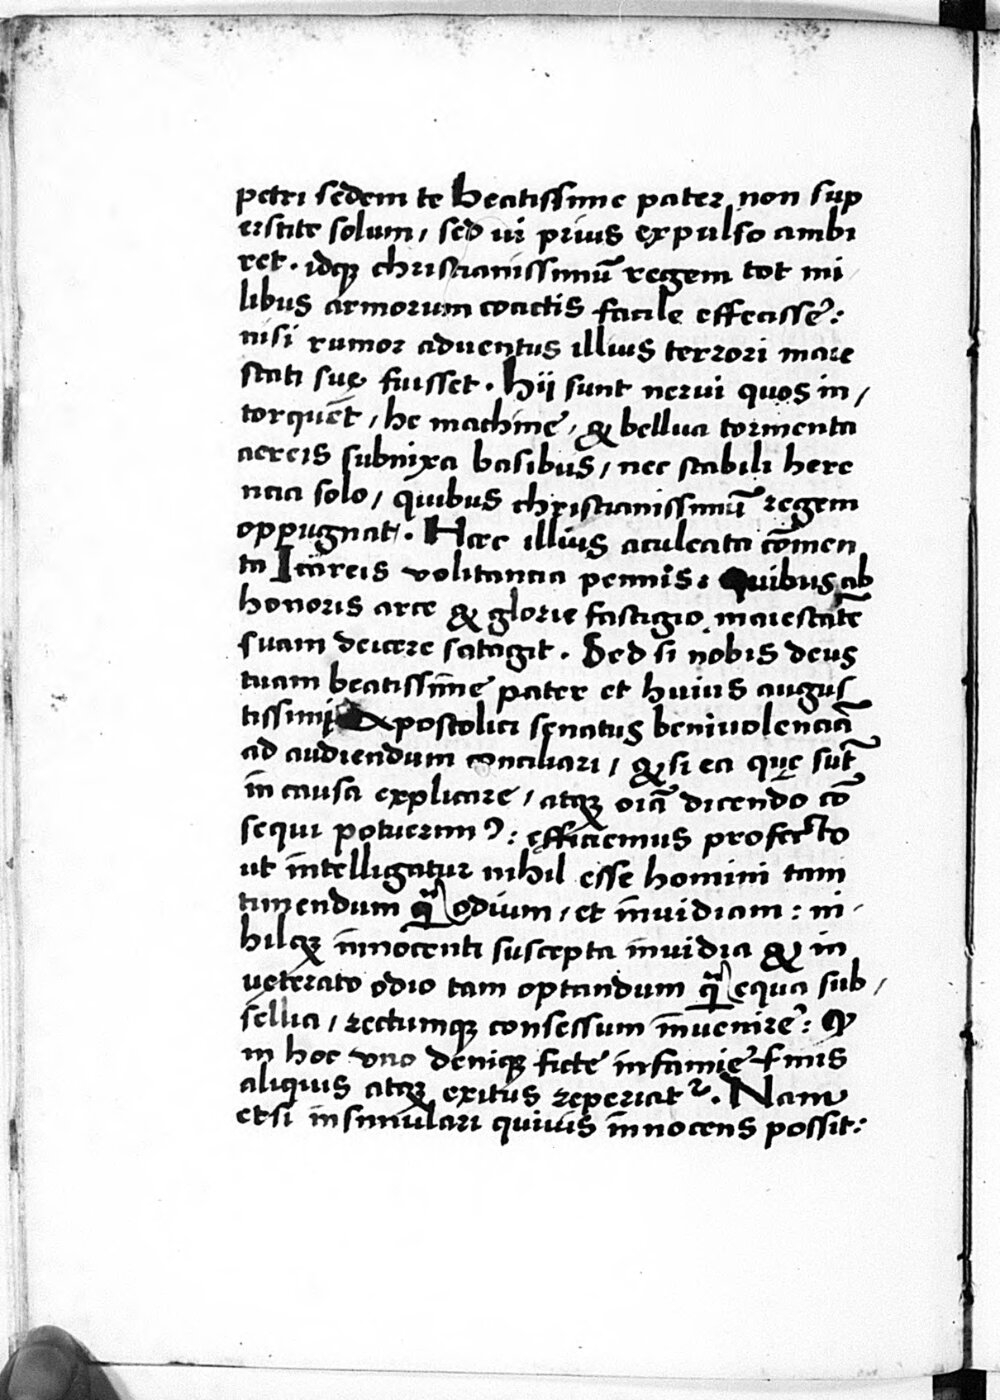 petri sedem te beatissime pater non sup
erstite solum, sed ut prius expulso ambi
ret. idqꝫ christianissimū regem tot mi
libus armorum coactis facile effecisse:
nisi rumor aduentus illius terrori maie
stati suę fuisset. Hij sunt nerui quos in,
torquēt, he machine, & bellua tormenta
aereis subnixa basibus, nec stabili here
ncia solo, quibus christianissimū regem
oppugnat. Hæc illius aculeata cōmen
ta Icareis volitancia pennis: Quibus ab
honoris arce & glorie fastigio maiestatē
suam deicere satagit. Sed si nobis deus
tuam beatissime pater et huius augus
tissimi Apostolici senatus beniuolenciā
ad audiendum conciliari, & si ea quę sūt
in causa explicare, atqꝫ oīā dicendo cō
sequi potuerimꝰ: efficiemus profecto
ut intelligatur nihil esse homini tam
timendum qᷓ odium, et inuidiam: ni
hilqꝫ innocenti suscepta inuidia & in
ueterato odio tam optandum qᷓ equa sub,
sellia, rectumqꝫ consessum inuenire: Qꝫ
in hoc vno deniqꝫ ficte infamie finis
aliquis atqꝫ exitus reperiatᷣ. Nam
etsi insimulari quiuis innocens possit: